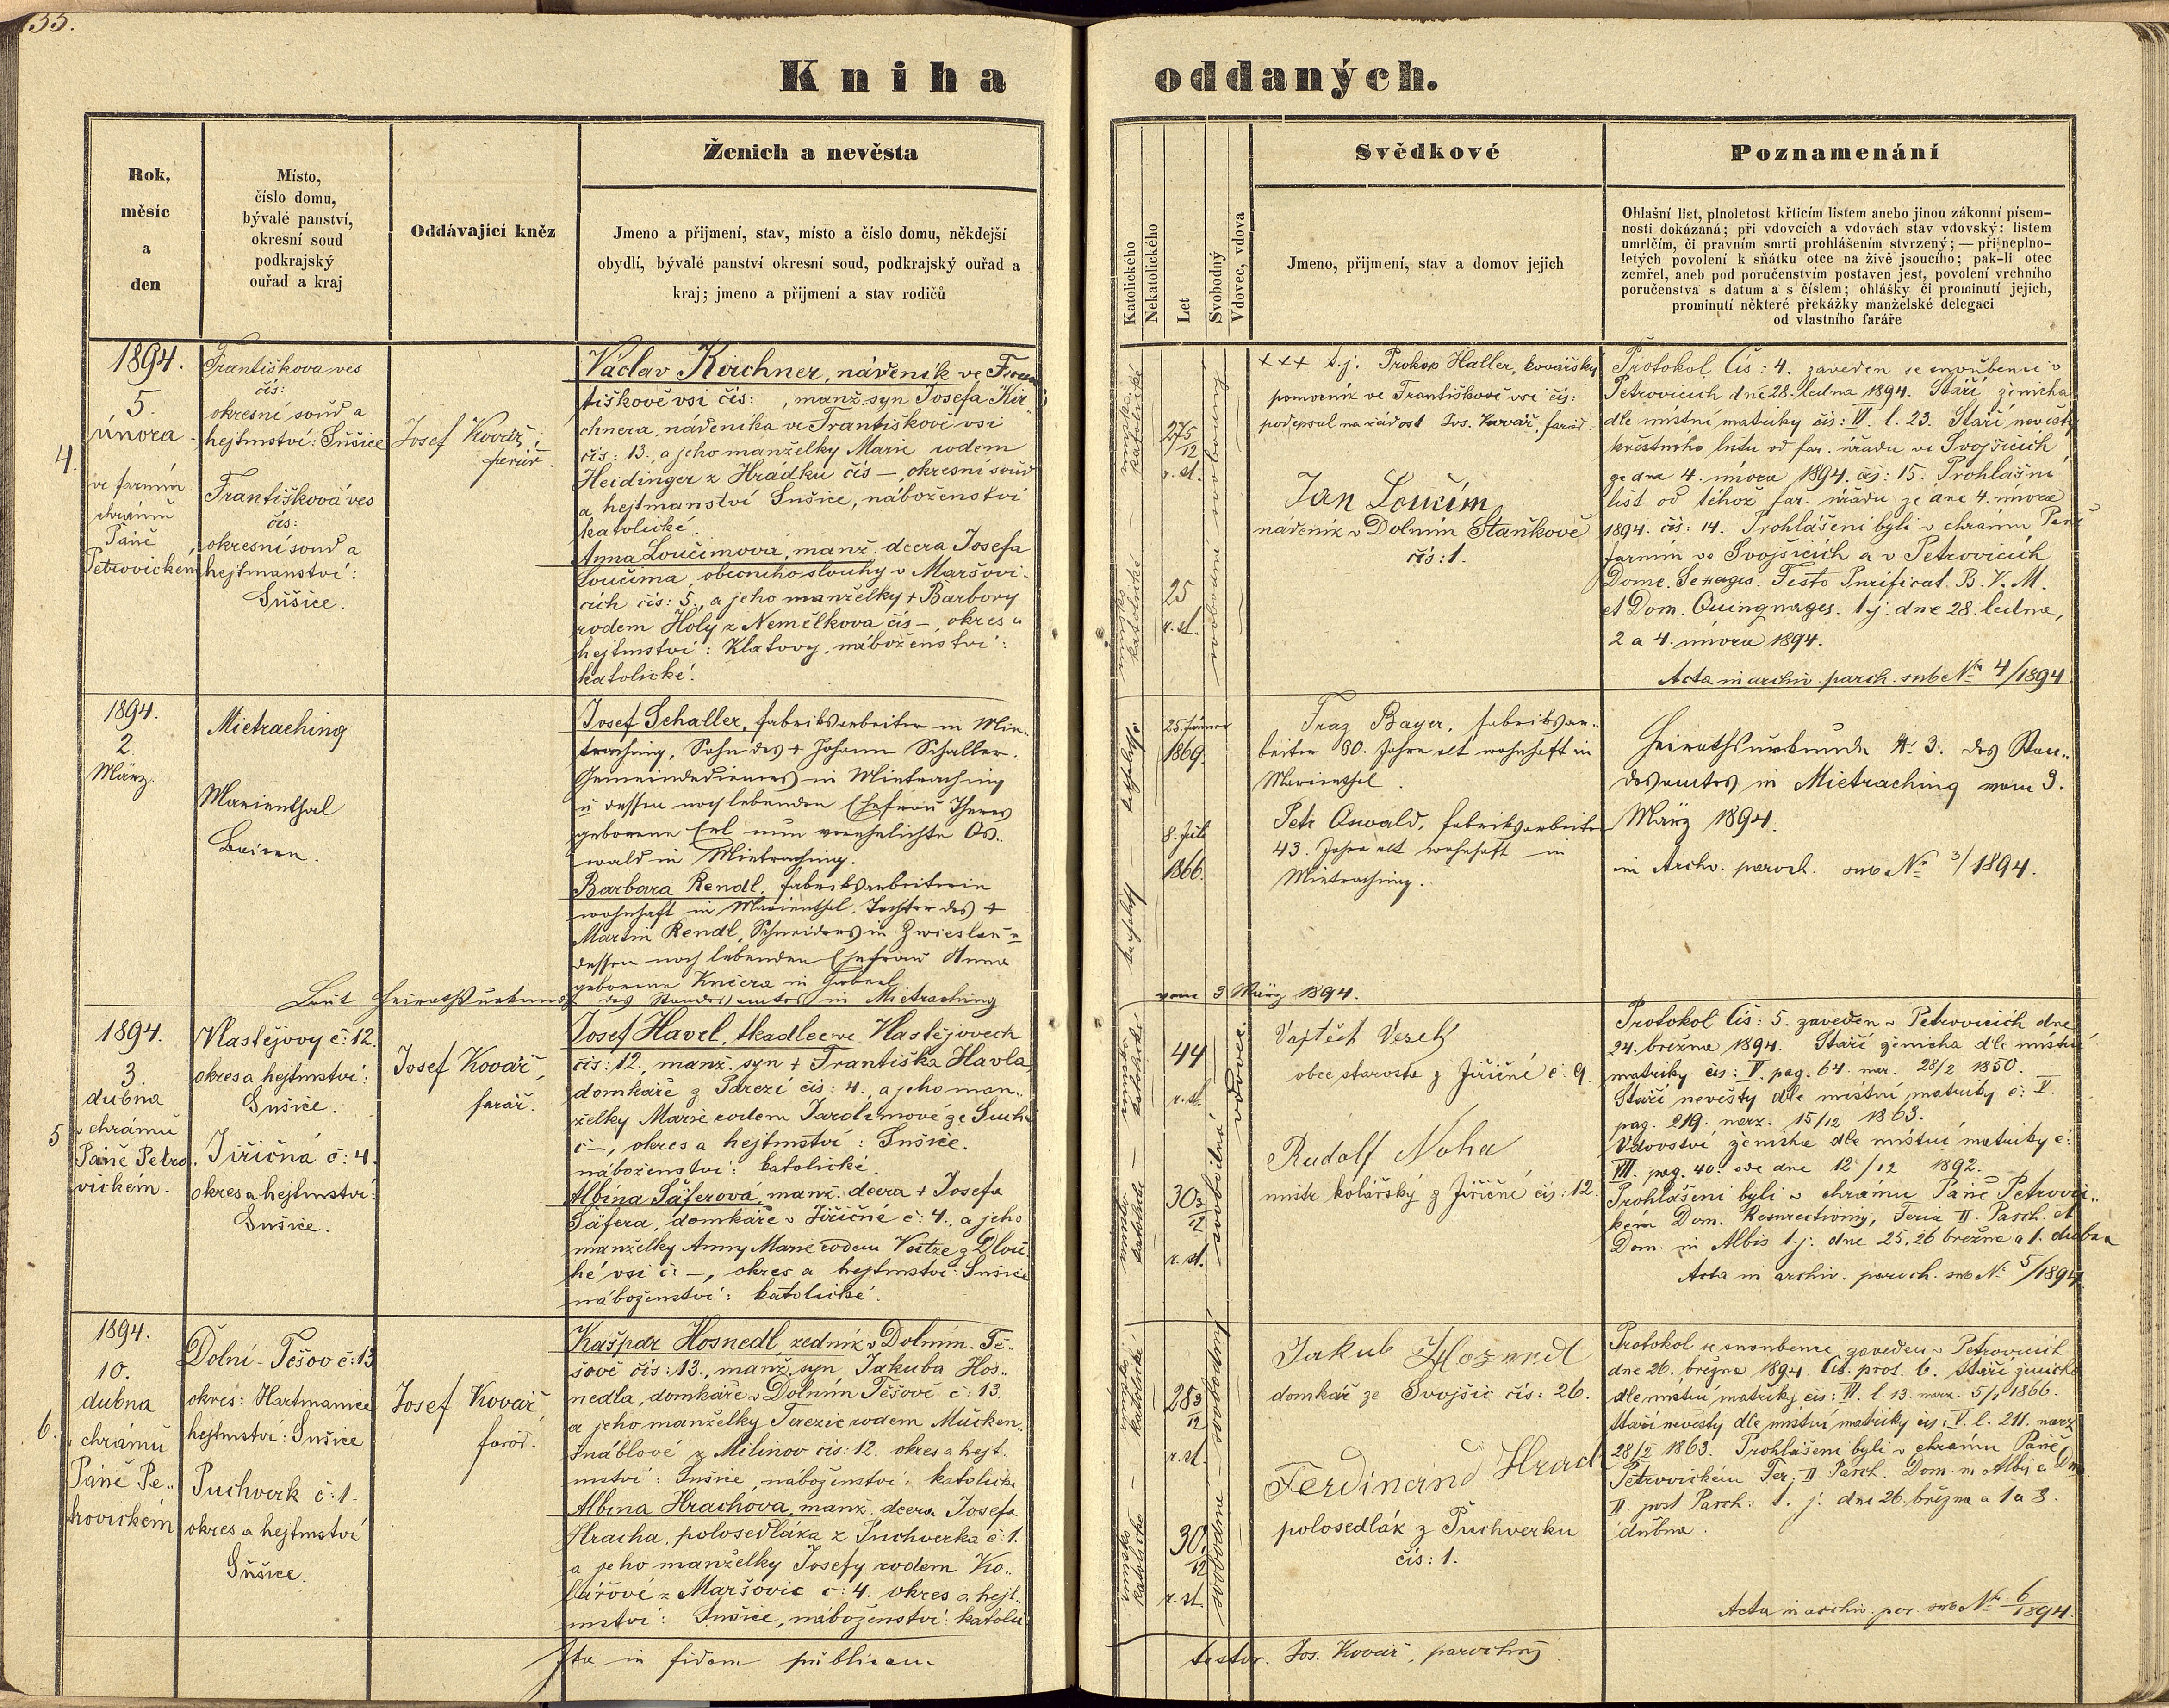 Kniha oddaných.
Rok,
měsíc
a
den
Místo,
číslo domu,
bývalé panství,
okresní soud
podkrajský
ouřad a kraj
Oddávající kněz
Ženich a nevěsta
Jmeno a přijmení, stav, místo a číslo domu, někdejší
obydlí, bývalé panství okresní soud, podkrajský ouřad a
kraj; jmeno a přijmení a stav rodičů
Katolického
Nekatolického
Let
Svobodný
Vdovec, vdova
Svědkové
Jmeno, přijmení, stav a domov jejich
Poznamenání
Ohlašní list, plnoletost křticím listem anebo jinou zákonní písem-
ností dokázaná; při vdovcích a vdovách stav vdovský: listem
umrlčím, či pravním smrti prohlášením stvrzený; — při neplno-
letých povolení k sňátku otce na živě jsoucího; pak-li otec
zemřel, aneb pod poručenstvím postaven jest, povolení vrchního
poručenstva s datum a s číslem; ohlášky či prominutí jejich,
prominutí některé překážky manželské delegaci
od vlastního faráře
4.
1894.
5.
února
ve farním
chrámu
Páně
Petrovickém
Františkova ves
čís:
okresní soud a
hejtmství: Sušice
Františková ves
čís:
okresní soud a
hejtmanství:
Sušice.
Josef Kovář,
farář.
Václav Kirchner, nádeník ve Fran
tiškově vsi čís: , manž. syn Josefa Kir
chnera, nádeníka ve Františkově vsi
čís: 13. a jeho manželky Marie rodem
Heidinger z Hrádku čís —, okresní soud
a hejtmanství Sušice, náboženství
katolické.
Anna Loučimová, manž. dcera Josefa
Loučima, obecního slouhy v Maršovi-
cích čís: 5., a jeho manželky + Barbory
rodem Holý z Nemělkova čís —, okres a
hejtmství: Klatovy, náboženství:
katolické.
27 5/12
r. st.
25
r. st.
+++ t.j. Prokop Haller, kovářský
pomocník ve Františkově vsi čís:
podepsal na žádost Jos. Kovář, farář.
Jan Loučím
nadeník v Dolním Staňkově
čís: 1.
Protokol čís: 4. zaveden se snoubenci v
Petrovicích dne 28. ledna 1894. Stáří ženicha
dle místní matriky čís: VI. l. 23. Stáří nevěsty
křestního listu od far. úřadu ve Svojšicích
ze dne 4. února 1894. čís: 15. Prohlášní
list od téhož far. úřadu ze dne 4. února
1894. čís: 14. Prohlášeni byli v chrámu Páně
farním ve Svojšicích a v Petrovicích
Dome. Sexages. Festo Purificat. B. V. M.
et Dom. Quinquages. t.j. dne 28. ledna,
2 a 4. února 1894.
Acta in archiv. paroch. sub No 4/1894
1894.
2.
März.
Mietraching
Marienthal
Baiern.
Josef Schaller, Fabriksarbeiter in Mie-
traching, Sohn des + Johann Schaller.
Gemeindedieners in Mietraching
u dessen noch lebenden Ehefrau Theres
geborene Ertl nun verehelichte Os-
wald in Mietraching.
Barbara Rendl, Fabriksarbeiterin
wohnhaft in Marienthal, Tochter des +
Martin Rendl, Schneiders in Zwieslau u
dessen noch lebenden Ehefrau Anna
geborene Kučera in Gaberl
Laut Heirathsurkunde des Standesamtes in Mietraching vom 3 März 1894.
25 Jänner
1869.
8. Juli
1866.
Fraz Bayer, Fabriksar-
beiter 60. Jahre alt wohnhaft in
Marienthal.
Petr Oswald, Fabriksarbeiter
43. Jahre alt wohnhaft in
Mietraching.
Heirathsurkunde N. 3. des Stan-
desamtes in Mietraching vom 3.
März 1894.
in Archv. paroch. sub No 3/1894.
5
1894.
3.
dubna
v chrámu
Páně Petro
vickém.
Vlastějovy č: 12.
okres a hejtmství:
Sušice.
Jiřičná č: 4.
okres a hejtmství:
Sušice.
Josef Kovář,
farář.
Josef Havel, tkadlec ve Vlastějovech
čís: 12., manž. syn + Františka Havla
domkáře z Pařezí čís: 4., a jeho man-
želky Marie rodem Jarolímové ze Suché
č —, okres a hejtmství: Sušice.
náboženství: katolické.
Albína Šáferová, manž. dcera + Josefa
Šáfera, domkáře v Jiřičné č: 4., a jeho
manželky Anny Marie rodem z Dlou
hé vsi č: —, okres a hejtmství: Sušice
náboženství: katolické.
44
r. st.
30 3/12
r. st.
vdovec.
svobodná
Vojtěch Veselý
obce starosta z Jiřičné č. 9.
Rudolf Noha
mistr kolářský z Jiřičné čís: 12.
Protokol čís: 5. zaveden v Petrovicích dne
24. března 1894. Stáří ženicha dle místní
matriky čís: V. pag. 64. nar. 28/2 1850.
Stáří nevěsty dle místní matriky č: V.
pag. 219. narz. 15/12 1863.
Vdovství ženicha dle místní matriky č:
VII. pag. 40. ode dne 12/12 1892.
Prohlášeni byli v chrámu Páně Petrovic-
kém Dom. Resurrectionis, Feria II. Pasch. et
Dom. in Albis t.j. dne 25, 26 března a 1. dubna
Acta in archiv. paroch. sub N. 5/1894
6.
1894.
10.
dubna
v chrámu
Páně Pe-
trovickém
Dolní-Těšov č: 13
okres: Hartmanice
hejtmství: Sušice
Puchverk č: 1.
okres a hejtmství
Sušice.
Josef Kovář,
farář.
Kašpar Hosnedl, zedník v Dolním Tě-
šově čís: 13., manž. syn Jakuba Hos-
nedla, domkáře v Dolním Těšově č: 13.
a jeho manželky Terezie rodem Mučken-
šnáblové z Milínov čís: 12. okres a hejt-
mství: Sušice, náboženství: katolické
Albina Hrachova, manž. dcera Josefa
Hracha, polosedláka z Puchverka č: 1.
a jeho manželky Josefy rodem Ko-
lářové z Maršovic č: 4. okres a hejt-
mství: Sušice, náboženství: katolic
28 3/12
r. st.
30 1/12
r. st.
svobodný
svobodná
Jakub Hosnedl
domkář ze Svojšic čís: 26.
Ferdinand Hrach
polosedlák z Puchverku
čís: 1.
Protokol se snoubenci zaveden v Petrovicích
dne 26. března 1894. čís. prot. 6. Stáří ženicha
dle místní matriky čís: VI. l. 13. narz. 5/1 1866.
Stáří nevěsty dle místní matriky čís: V. l. 211. narz
28/2 1863. Prohlášeni byli v chrámu Páně
Petrovickém Fer. II Pasch. Dom. in Albis a Dom
II post Pasch: t. j. dne 26. března a 1 a 8.
dubna.
Acta in archiv. par. sub No 6/1894.
Ita in fidem publicam testor. Jos. Kovář, parochus